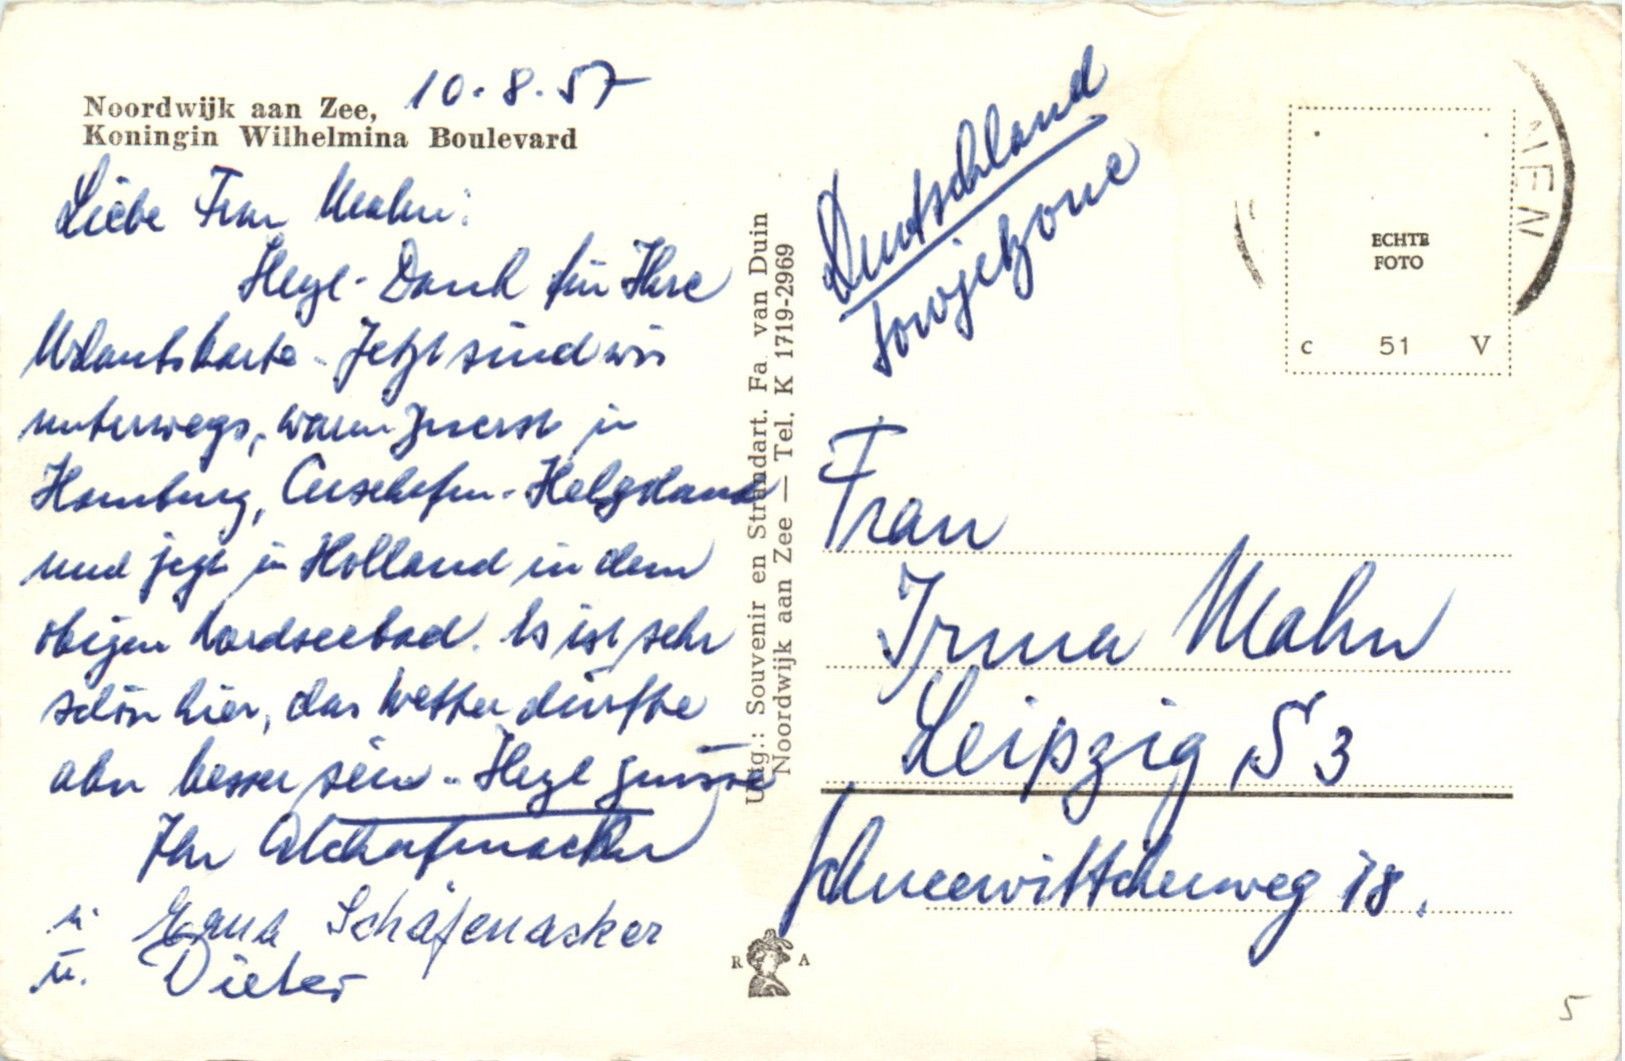 Noordwijk aan Zee, 10.8.57
Koningin Wilhelmina Boulevard
Liebe Frau Mahn:
Herzl. Dank für Ihre
Urlaubskarte. Jetzt sind wir
unterwegs, waren zuerst in
Hamburg, Cuxhafen - Helgoland
und jetzt in Holland in dem
obigen Nordseebad. Es ist sehr
schön hier, das Wetter dürfte
aber besser sein. Herzl Grüsse
Ihr
u. Schäfenacker
u. Dieter
Uitg.: Souvenir en Strandart. Fa. van Duin
Noordwijk aan Zee — Tel. K 1719-2969
R A
Deutschland
Sowjetzone
MEN
ECHTE
FOTO
C 51 V
Frau
Irma Mahn
Leipzig S 3
Schneewittchenweg 18.
5